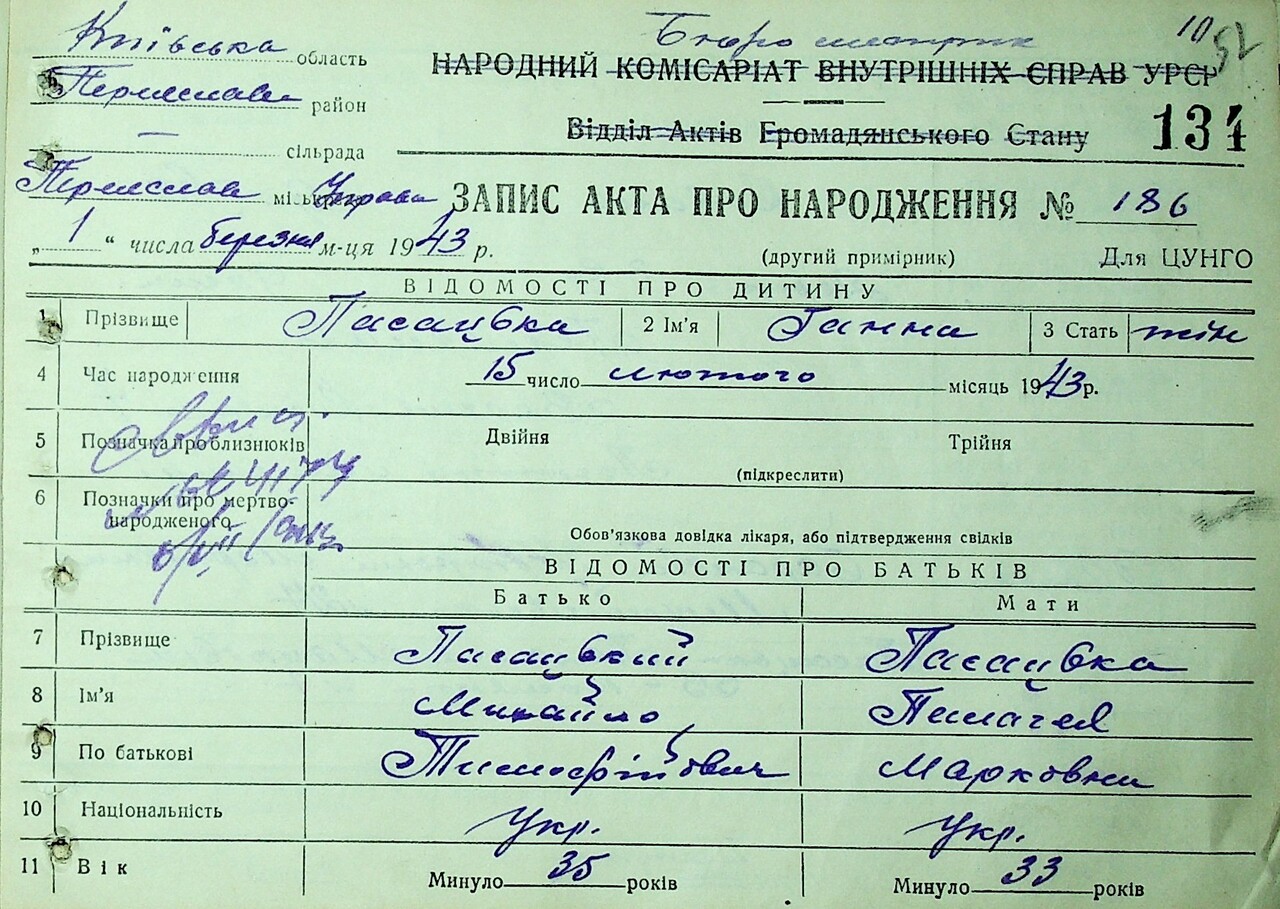 Київська область
Бюро метрик
10
52
Переяслав район
НАРОДНИЙ КОМІСАРІАТ ВНУТРІШНІХ СПРАВ УРСР
— сільрада
Відділ Актів Громадянського Стану
134
Переяслав Управа
ЗАПИС АКТА ПРО НАРОДЖЕННЯ № 186
„ 1 “ числа березня м-ця 1943 р.
(другий примірник)
Для ЦУНГО
ВІДОМОСТІ ПРО ДИТИНУ
1 Прізвище Пасацька 2 Ім'я Ганна 3 Стать жін
4 Час народження 15 число лютого місяць 1943 р.
5 Позначка про близнюків Двійня Трійня
(підкреслити)
6 Позначки про мертво-
народженого
Обов'язкова довідка лікаря, або підтвердження свідків
ВІДОМОСТІ ПРО БАТЬКІВ
Батько Мати
7 Прізвище Пасацький Пасацька
8 Ім'я Михайло Пелагея
9 По батькові Тимофійович Марковна
10 Національність Укр. Укр.
11 Вік Минуло 35 років Минуло 33 років